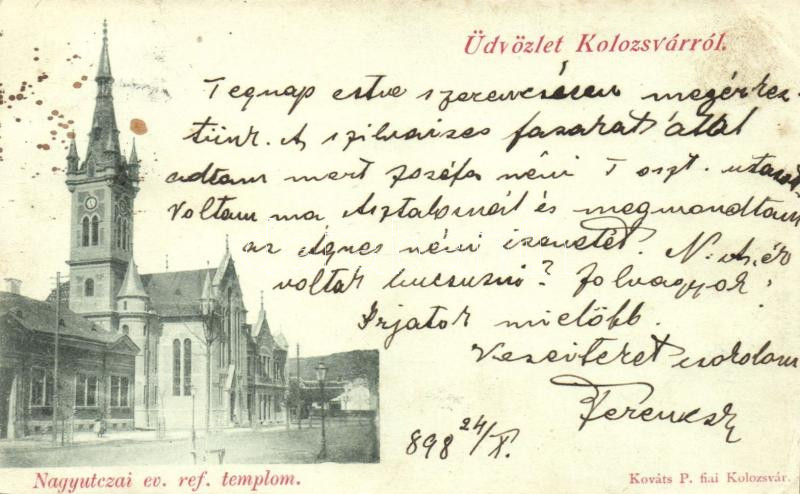 Üdvözlet Kolozsvárról.
Tegnap estve szerencsésen megérkez-
tünk. A szilvaizes fazarat által
adtam mert Jozéfa néni I oszt. utazot
Voltam ma Asztalosnál és megmondtam
az Ágnes néni izenetét. N.
voltak bucsuzni? Jolvagyok.
Irjatok mielőbb.
csokolom
Ferencz
898 24/X.
Nagyutczai ev. ref. templom.
Kováts P. fiai Kolozsvár.